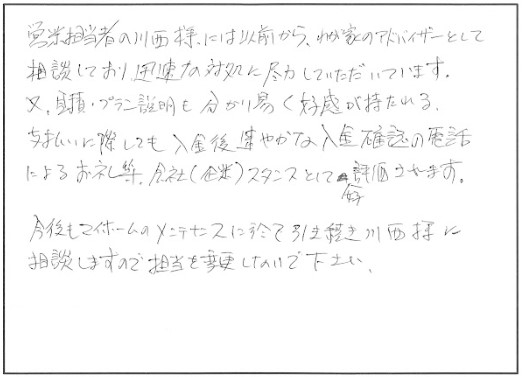 営業担当者の川西様には以前から、わが家のアドバイザーとして
相談しており迅速な対処に尽力していただいています。
又、見積・プラン説明も分かり易く好感が持たれる、
支払いに際しても入金後速やかな入金確認の電話
によるお礼等、会社(企業)スタンスとして好評価できます。
今後もマイホームのメンテナンスに於て引き続き川西様に
相談しますので担当を変更しないで下さい。